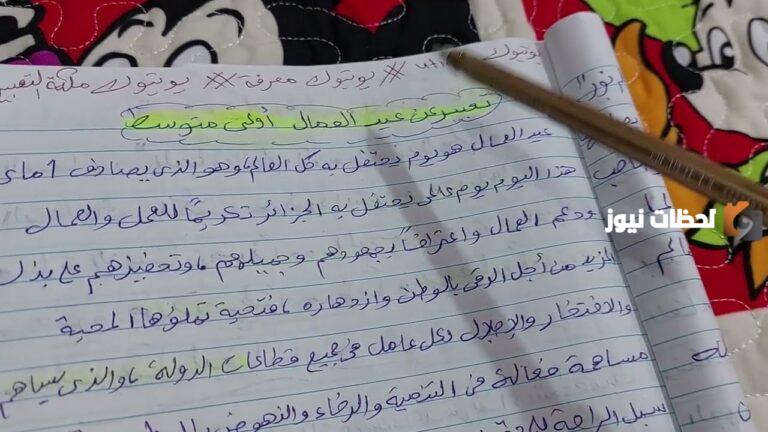 يوتيوب معرفة # يوتيوب ملكة التعبير
تعبير عن عيد العمال أولى متوسط
عيد العمال هو يوم نحتفل به كل العالم، وهو الذي يصادف 1 ماي
هذا اليوم يوم عالمي نحتفل به الجزائر تكريمًا للعمل والعمال
ودعم العمال واعترافًا بجهودهم وجميلهم، وتحفيزهم على بذل
المزيد من أجل الرقي بالوطن وازدهاره، فتحية تملؤها المحبة
والافتخار والإجلال لكل عامل في جميع قطاعات الدولة، والذي يساهم
مساهمة فعالة في التنمية والرخاء والنهوض
سبل الراحة
لحظات نيوز